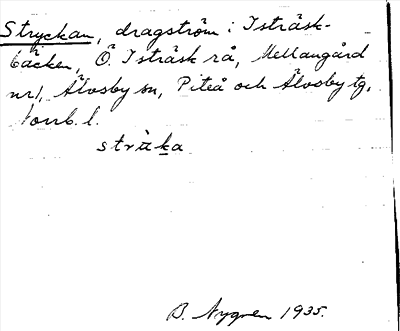 Stryckan, dragström i Isträsk-
bäcken, Ö. Isträsk rå, Mellangård
nr 1, Älvsby sn, Piteå och Älvsby tg,
Norrb. l.
strùka
B. Nygren 1935.